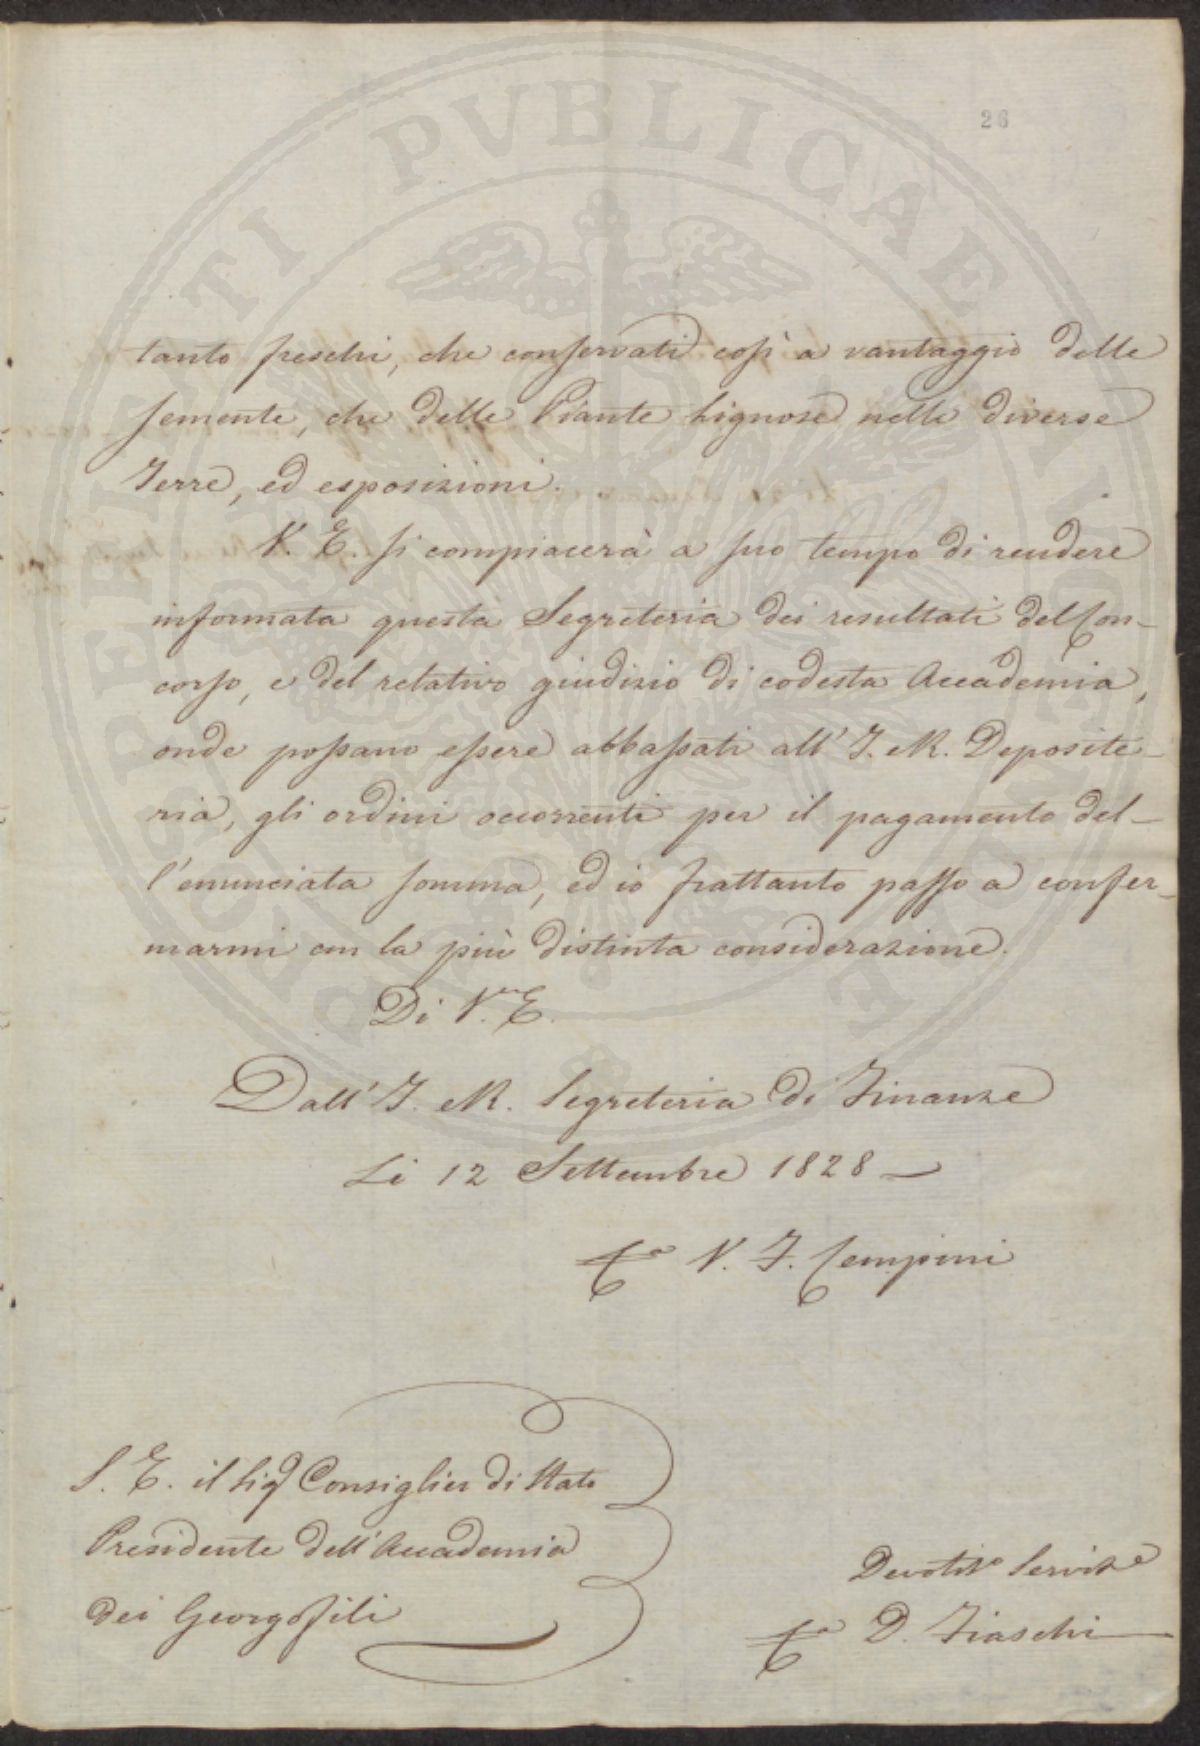 26
tanto freschi, che conservati così a vantaggio delle
semente, che delle Piante lignose nelle diverse
Terre, ed esposizioni.
V. E. si compiacerà a suo tempo di rendere
informata questa Segreteria dei resultati del Con-
corso, e del relativo giudizio di codesta Accademia,
onde possano essere abbassati all' I. e R. Deposite-
ria, gli ordini occorrenti per il pagamento del-
l'enunciata somma, ed io frattanto passo a confer-
marmi con la più distinta considerazione.
Di V. E.
Dall' I. e R. Segreteria di Finanze
Li 12 Settembre 1828 —
N. F. Cempini
S. E. il Sig Consiglier di Stato
Presidente dell'Accademia
dei Georgofili
Devotis Servit
D. Fiaschi